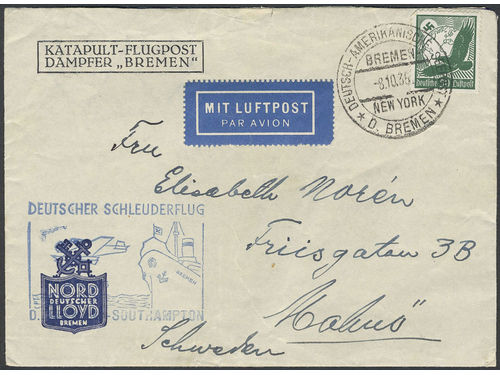 KATAPULT-FLUGPOST
DAMPFER „BREMEN“
DEUTSCH-AMERIKANISCHE
BREMEN
-8.10.35
NEW YORK
★ D. BREMEN ★
Deutsche Luftpost
MIT LUFTPOST
PAR AVION
Fru
Elisabeth Norén
Friisgatan 3B
Malmö
Schweden
DEUTSCHER SCHLEUDERFLUG
BREMEN
NORD
DEUTSCHER
LLOYD
BREMEN
D. SOUTHAMPTON